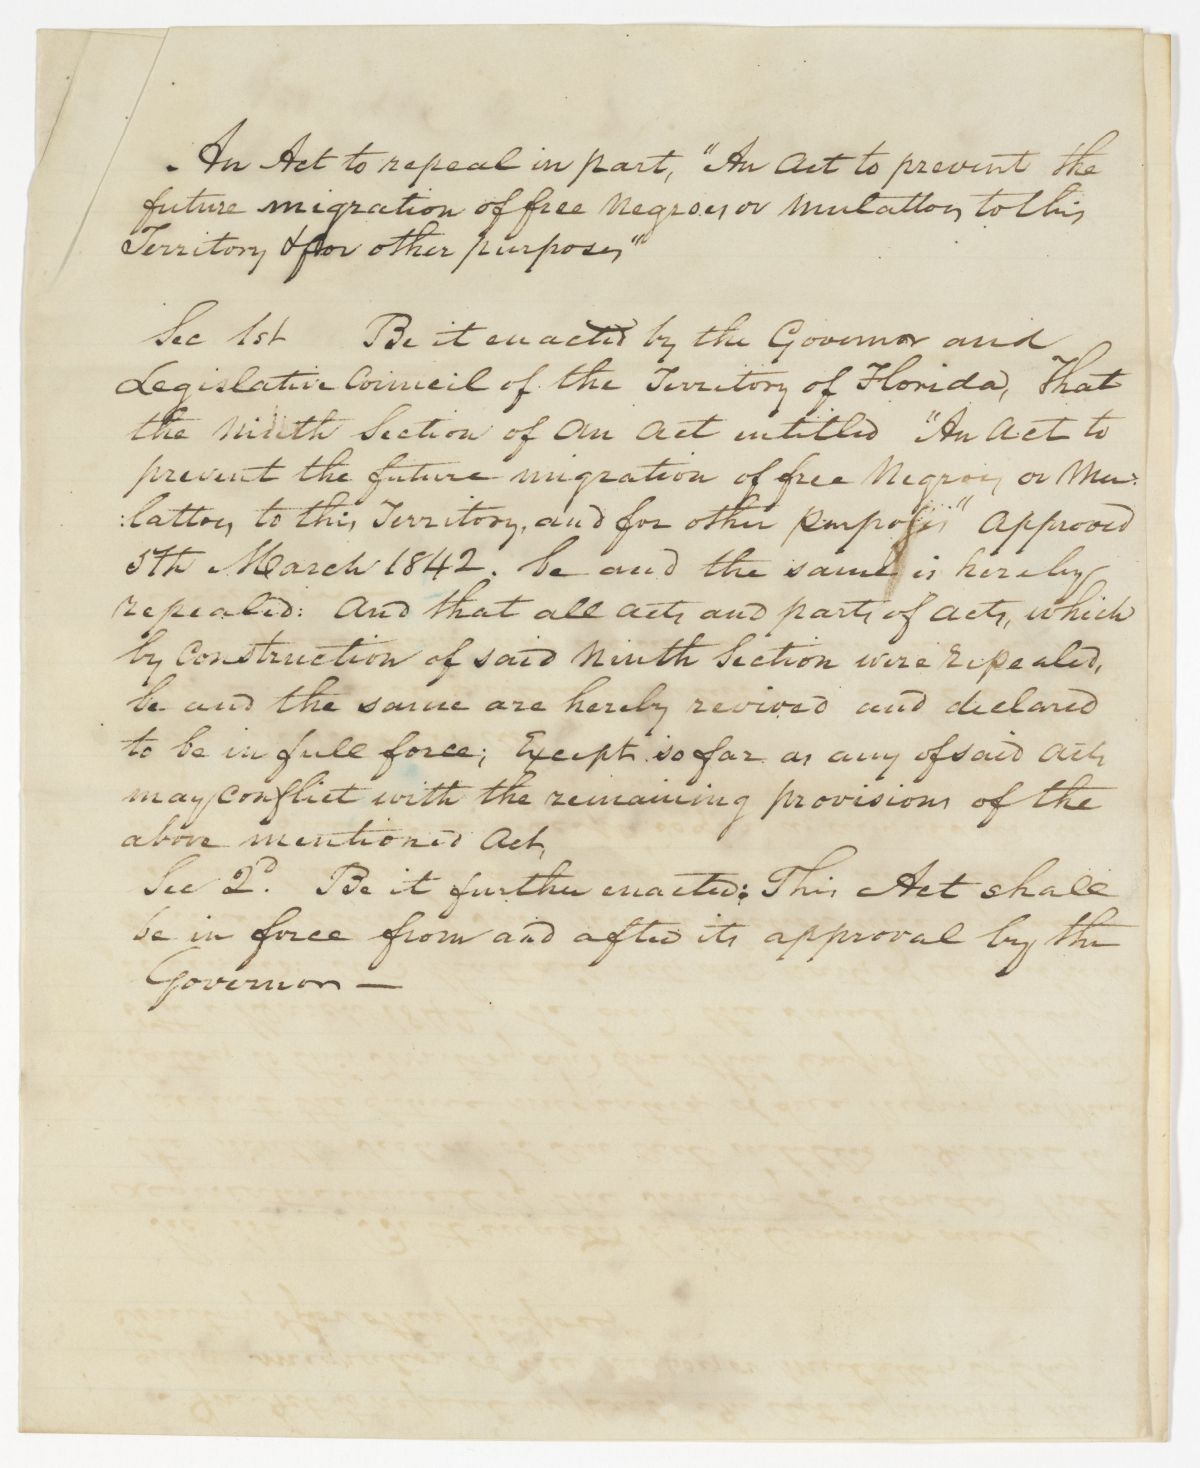 An Act to repeal in part, "An Act to prevent the
future migration of free Negroes or Mulattoes to this
Territory & for other purposes"
Sec 1st Be it enacted by the Governor and
Legislative Council of the Territory of Florida, That
the Ninth Section of An Act entitled "An Act to
prevent the future migration of free Negroes or Mu:
:lattoes to this Territory, and for other purposes" approved
5th March 1842. be and the same is hereby
repealed: And that all acts and parts of acts, which
by Construction of said Ninth Section were repealed,
be and the same are hereby revived and declared
to be in full force; Except so far as any of said Acts
may conflict with the remaining provisions of the
above mentioned Act,
Sec 2d. Be it further enacted: This Act shall
be in force from and after its approval by the
Governor —